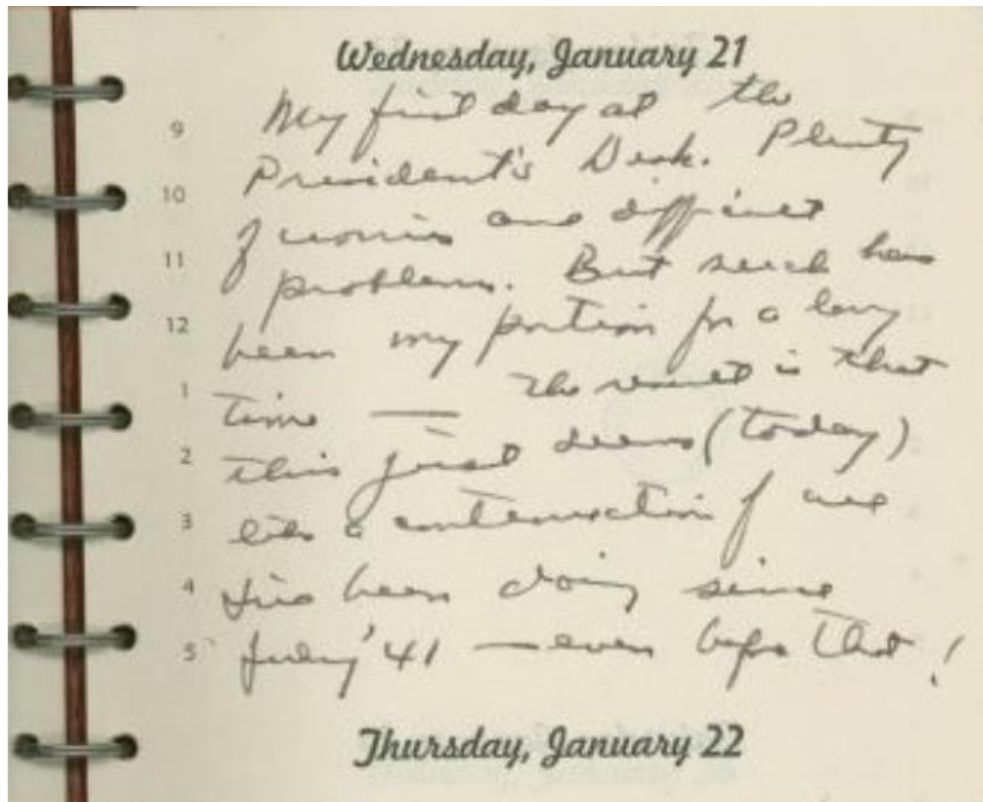 Wednesday, January 21
9 My first day at the
President's Desk. Plenty
10
of worries and difficult
11 problems. But such has
12 been my portion for a long
1 time — the result is that
2 this just seems (today)
3 like a continuation of all
4 I've been doing since
5 July '41 — even before that!
Thursday, January 22